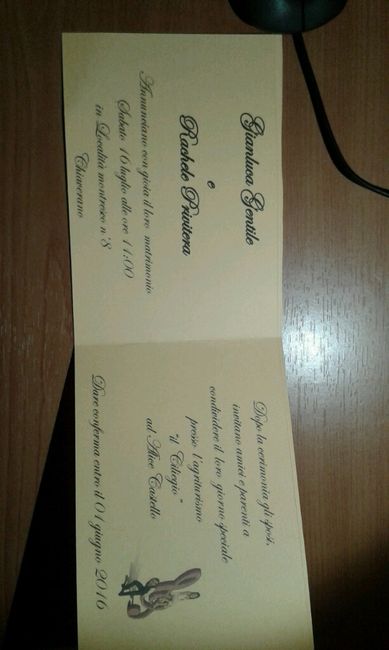 Gianluca Gentile
e
Rachele Privitera
Annunciano con gioia il loro matrimonio
Sabato 16 luglio alle ore 11:00
in Località montresco n°8
Chiaverano
Dopo la cerimonia gli sposi,
invitano amici e parenti a
condividere il loro giorno speciale
presso l'agriturismo
"il Ciliegio"
ad Alice Castello
Dare conferma entro il 01 giugno 2016